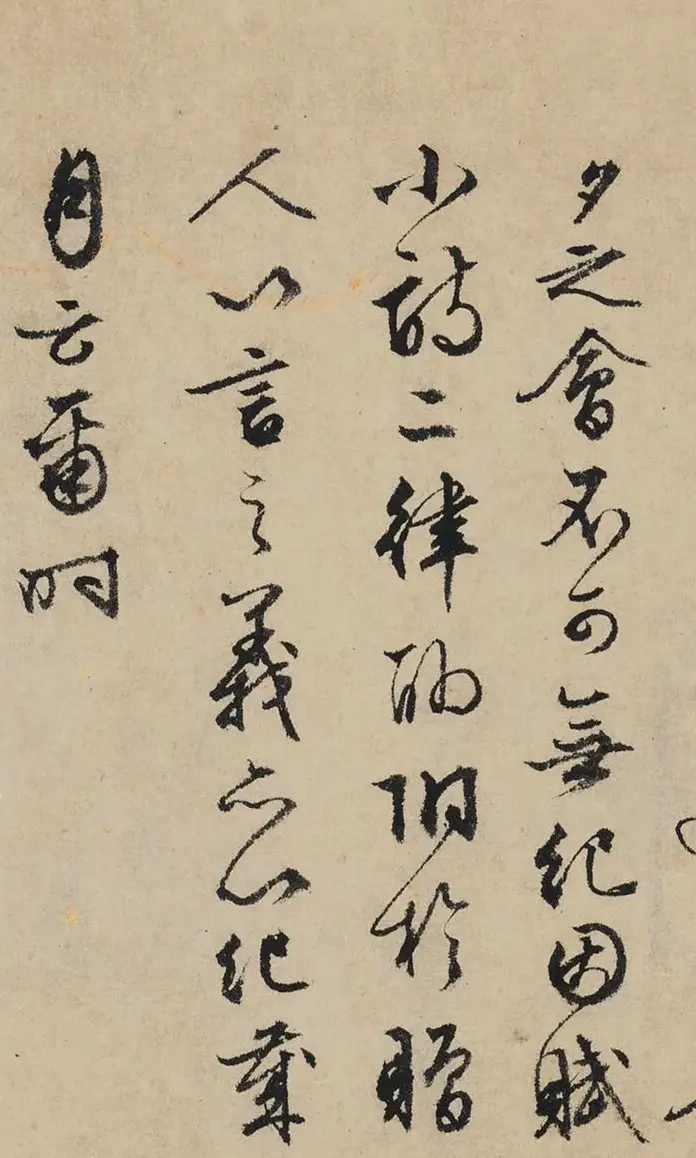 夕之會不可無紀因賦
小詩二律聊附於贈
人以言之義亦以紀歲
月云爾時